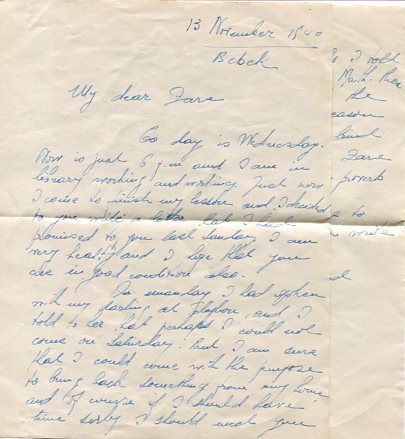 13 November 1940
Bebek
My dear Fare
To day is Wednesday.
Now is just 6 p.m and I am in
library working and working. Just now
I come to finish my lesson and I decided
to you write a letter that I had
promised to you last Sunday. I am
very healthy and I hope that you
are in good condition also.
In monday I had spoken
with my darling at telephone, and I
told to her that perhaps I could not
come on Saturday: but I am sure
that I could come with the purpose
to bring back something from my home
and of course if I should have
time surley I should meet you
I told
the
Fare
proverb
to
write